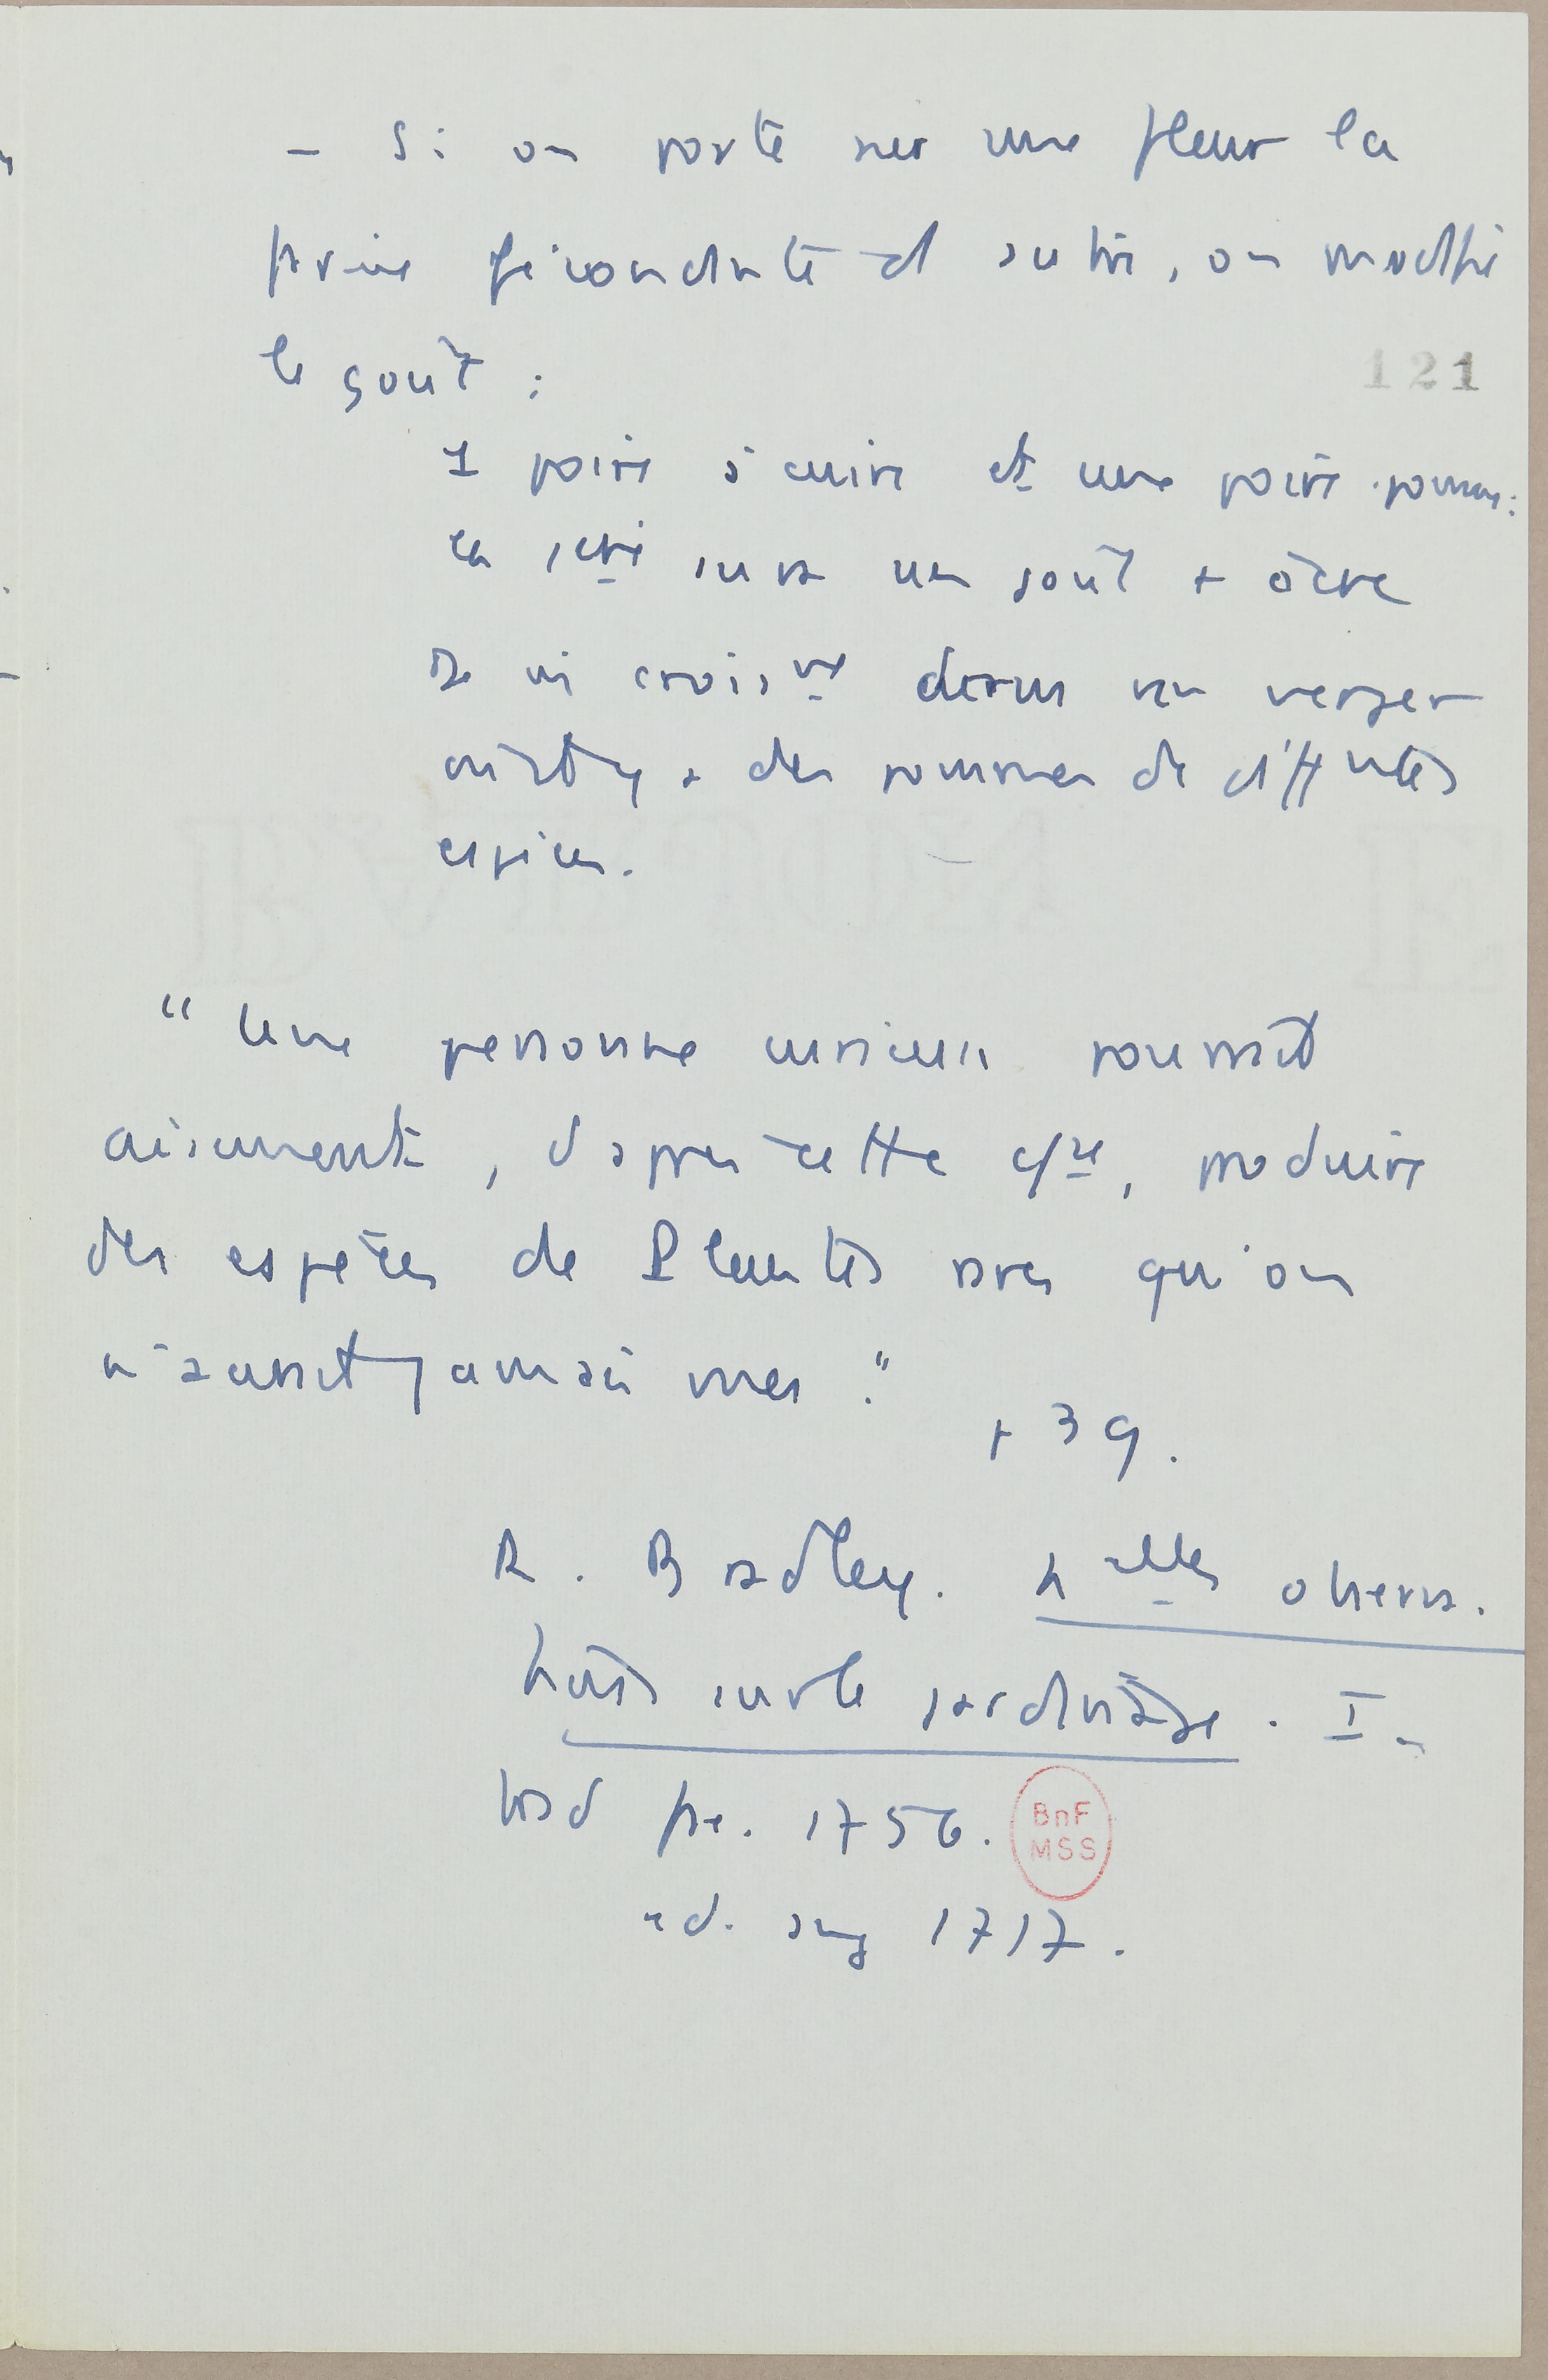 - Si on porte sur une fleur la
farine fécondante d'autre, on modifie
le goût :
121
1 poire à cuire et une poire
la 1ère aura un goût + âcre
De croisre dans un verger
des pommes de difftes
espèces.
"Une personne curieuse pourrait
aisément, d'après cette csce, produire
des espèces de Plantes rares qu'on
n'aurait jamais vues."
p 39.
R. Bradley. Nelles observa
tions sur le jardinage. I.
trad fse. 1756.
BnF
MSS
ed. ang 1717.